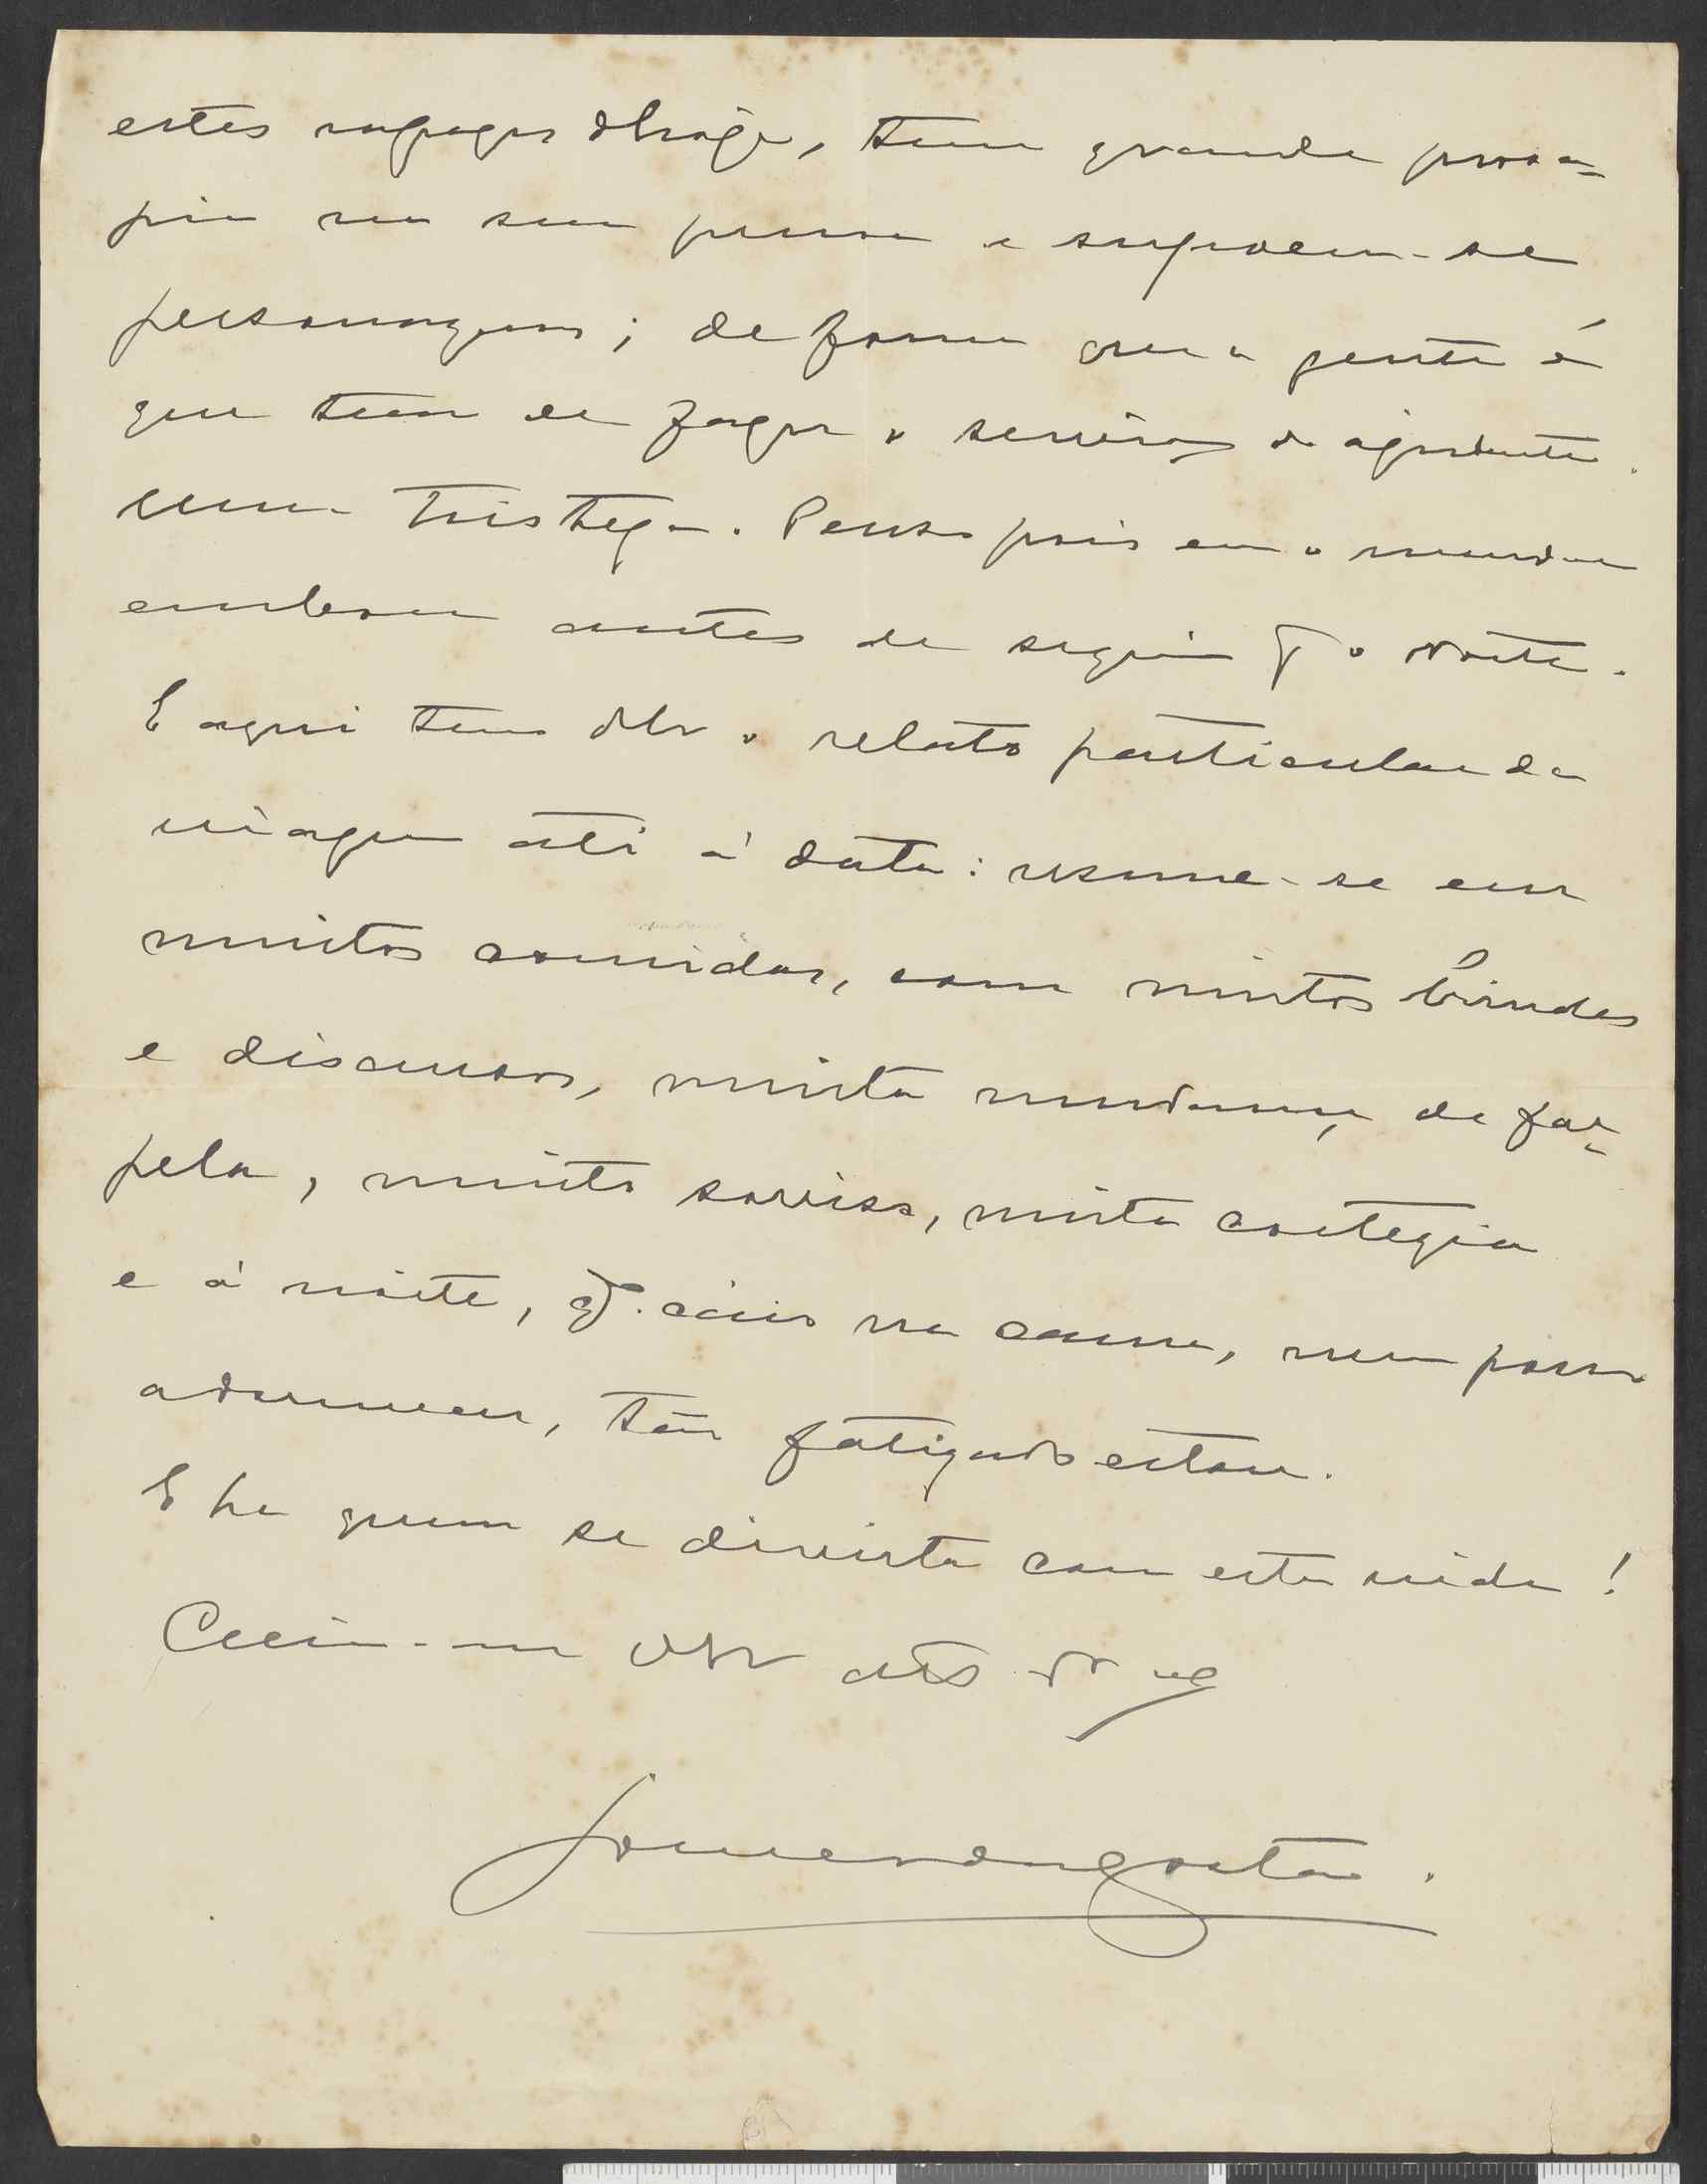 estes rapazes d'hoje, teem grande proa-
pia na sua pessoa e supoem-se
personagens; de forma que a gente é
que tem de fazer o serviço do ajudante.
uma tristeza. Penso pois em o mandar
embora antes de seguir o Norte.
E aqui tem o relato particular da
viagem até á data: resume-se em
muitas comidas, com muitos brindes
e discursos, muita mudança de far-
pela, muito sorriso, muita cortezia
e á noite, qdo. caio na cama, nem posso
adormecer, tão fatigado estou.
E ha quem se divirta com esta vida!
Creia-me
Gomes da Costa.